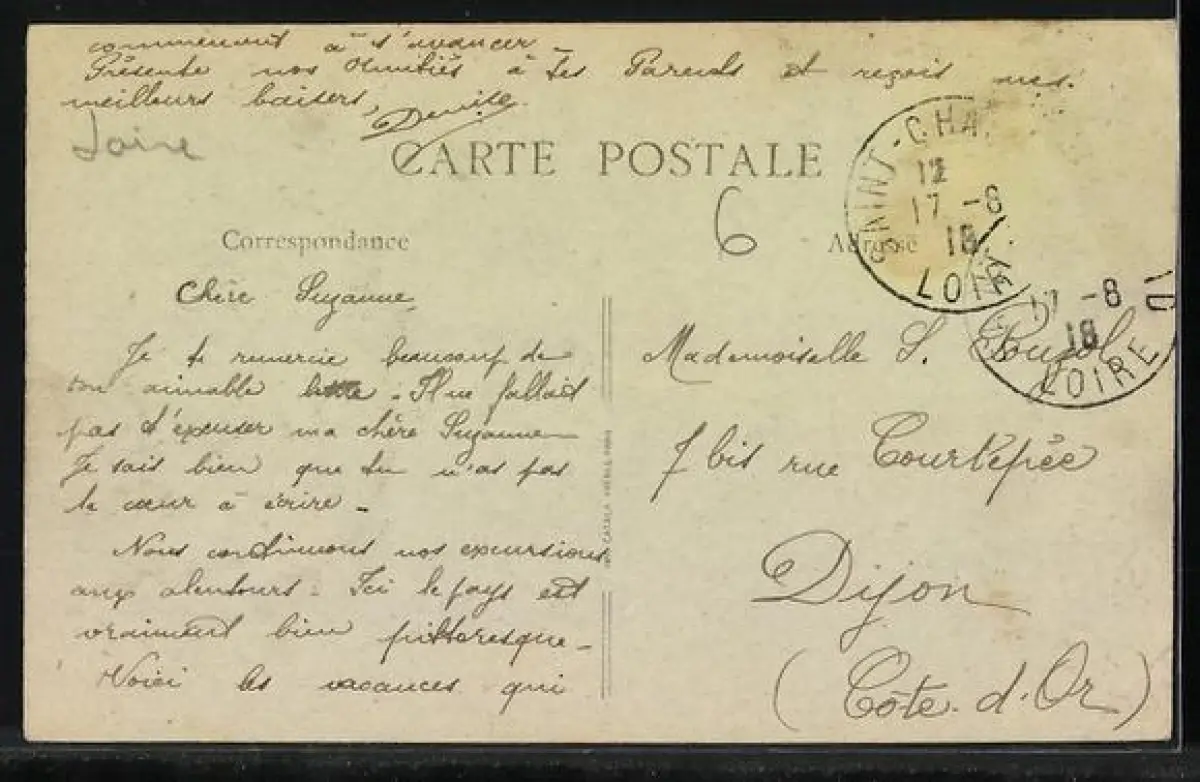 commencent à s'avancer
Présente nos Amitiés à tes Parents et reçois mes
meilleurs baisers,
Denise
Loire
CARTE POSTALE
6
Correspondance
Adresse
SAINT-CHA
12
17 -8
18
LOIRE
17 -8
18
LOIRE
Chère Suzanne,
Je te remercie beaucoup de
ton aimable lettre. Il ne fallait
pas t'excuser ma chère Suzanne
Je sais bien que tu n'as pas
le cœur à écrire -
Nous continuons nos excursions
aux alentours. Ici le pays est
vraiment bien pittoresque -
Voici les vacances qui
Mademoiselle S.
7 bis rue Courtépée
Dijon
(Côte-d'Or)